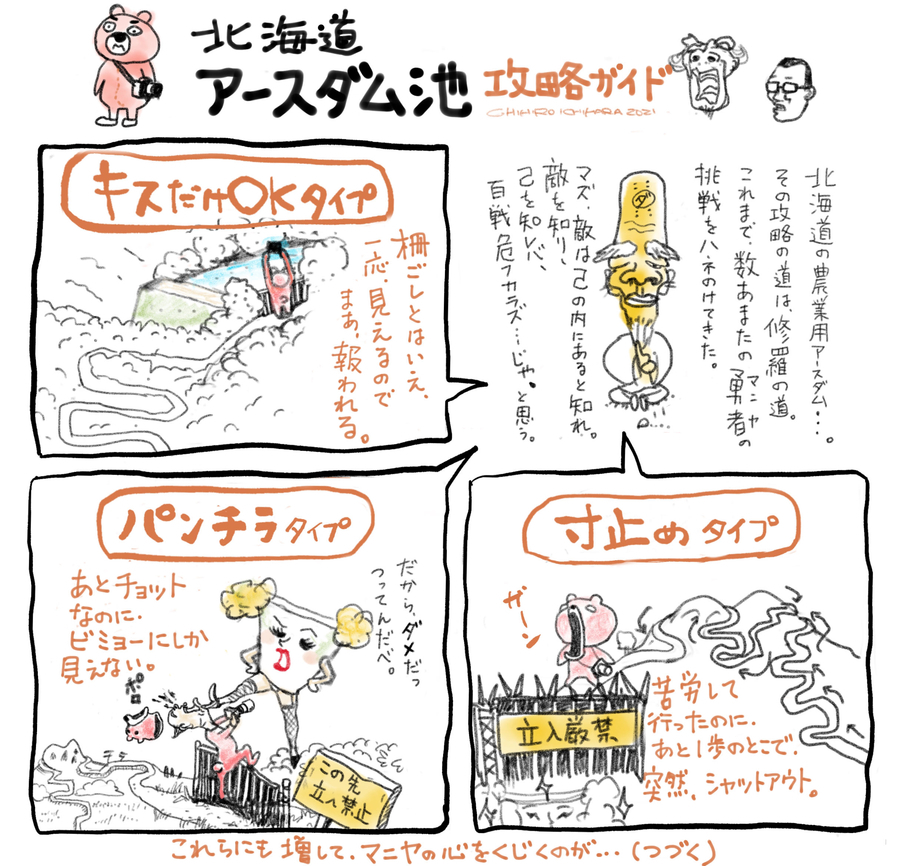 北海道
アースダム池 攻略ガイド
CHIHIRO ICHIHARA 2021
北海道の農業用アースダム…。
その攻略の道は、修羅の道。
これまで、数あまたの勇者の
マニヤ
挑戦をハネのけてきた。
マズ、敵は己の内にあると知れ。
敵を知り、
己を知レバ、
百戦危フカラズ…じゃ。と思う。
ダ
キスだけOKタイプ
柵ごしとはいえ、
一応、見えるので
まあ、報われる。
パンチラタイプ
あとチョット
なのに、
ビミョーにしか
見えない。
だから、ダメだっ
つってんだべ。
ポロ
チラ
この先
立入禁止
寸止めタイプ
ガーン
立入厳禁
苦労して
行ったのに、
あと1歩のとこで、
突然、シャットアウト。
これらにも増して、マニヤの心をくじくのが…(つづく)